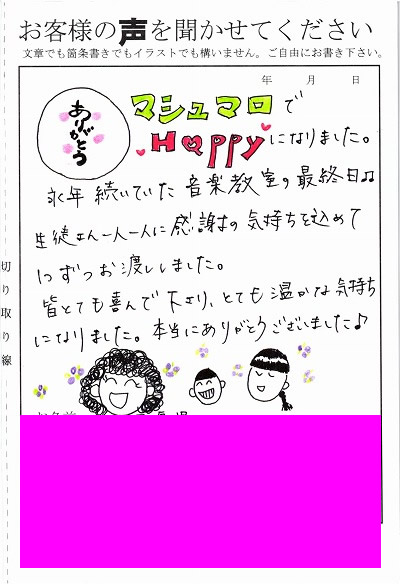 お客様の声を聞かせてください
文章でも箇条書きでもイラストでも構いません。ご自由にお書き下さい。
年 月 日
ありがとう
マシュマロで
Happyになりました。
永年続いていた音楽教室の最終日♫
生徒さん一人一人に感謝の気持ちを込めて
1つずつお渡ししました。
皆とても喜んで下さり、とても温かな気持ち
になりました。本当にありがとうございました♪
切り取り線